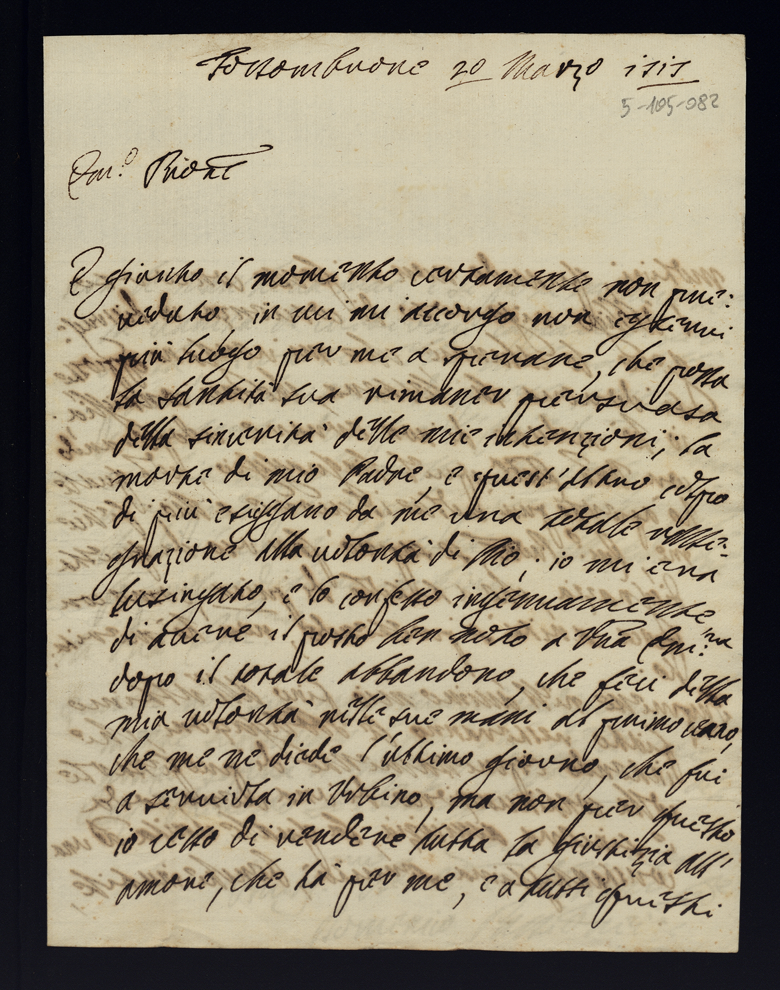 Fossombrone 20 Marzo 1717
5-105-082
Em.º Prione
È giunto il momento certamente non pre:
veduto, in cui mi accorgo non esservi
più luogo per me a sperare, che possa
la Santità sua rimaner persuasa
della sincerità delle mie intenzioni; la
morte di mio Padre, e quest'altro colpo
di più esiggano da me una totale rasse:
gnazione alla volontà di Dio; io mi era
lusingato, e lo confesso ingenuamente
di avere il posto ben noto a Vra Em:ma
dopo il totale abbandono, che feci della
mia volontà nelle sue mani al primo cenno,
che me ne diede l'ultimo giorno, che fui
a servirla in Urbino, ma non per questo
io cesso di rendere tutta la giustizia all'
amore, che hà per me, e a tutti questi